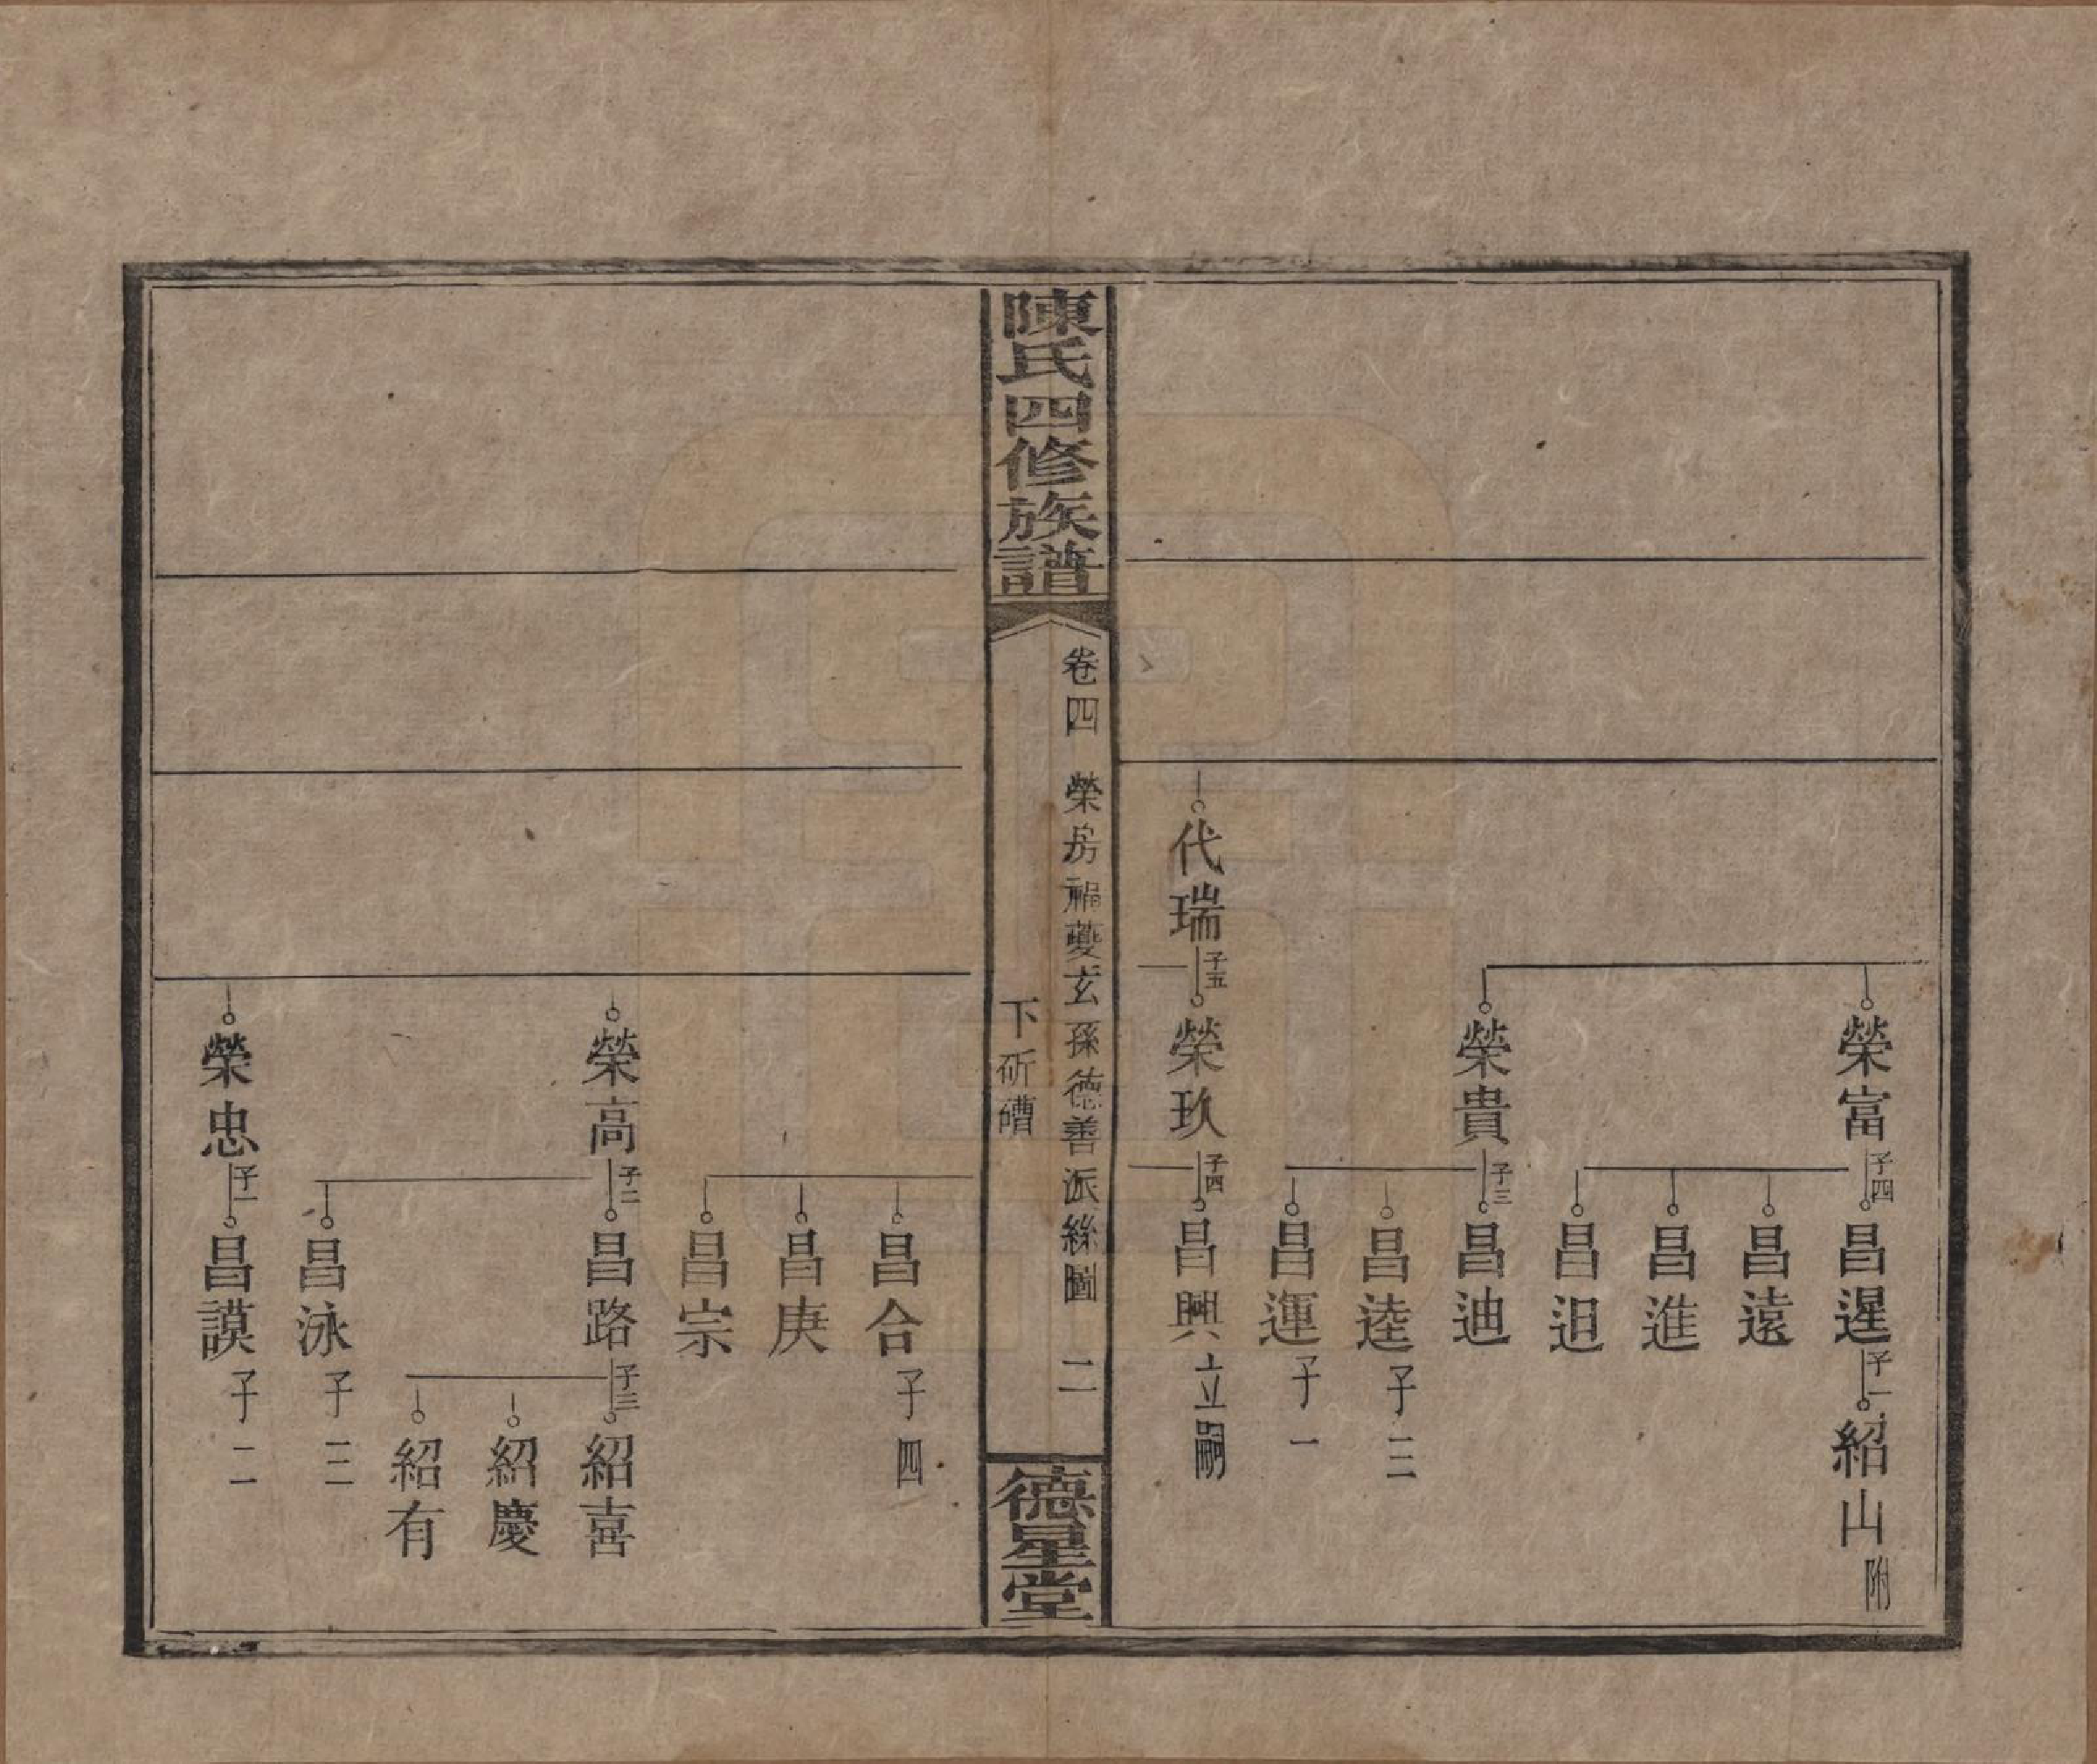 榮富 子四 昌遲 子一 紹山 附
昌遠
昌進
昌迌
榮貴 子三 昌迪
昌逵 子三
昌運 子一
代瑞 子五 榮玖 子四 昌興 立嗣
陳氏四修族譜 卷四 榮房福夔玄孫德善派絲圖 二 德星堂
下斫磳
昌合 子四
昌庚
昌宗
榮高 子二 昌路 子三 紹喜
紹慶
紹有
昌泳 子三
榮忠 子一 昌謨 子二